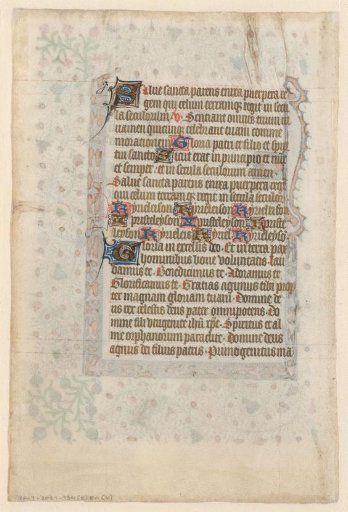 Salve sancta parens enixa puerpera re
gem qui celum terramqz regit in secu
la seculorum. v. Senciant omnes tuum iu
uamen quicumqz celebrant tuam comme
morationem. Gloria patri et filio et spiri
tui sancto. Sicut erat in principio et nunc
et semper et in secula seculorum amen.
Salve sancta parens enixa puerpera rege
qui celum terramqz regit in secula seculoz.
Kyrieleison Kyrieleison Kyrieleison
Xpristeleyson Xpristeleyson Xpriste
leyson Kyrieleis Kyrieleis Kyrieleyso
Gloria in excelsis deo. Et in terra pax
hominibus bone voluntatis. Lau
damus te. Benedicimus te. Adoramus te
Glorificamus te. Gratias agimus tibi prop
ter magnam gloriam tuam. Domine de
us rex celestis deus pater omnipotens. Do
mine fili unigenite ihu xpe. Spiritus et al
me orphanorum paraclite. Domine deus
agnus dei filius patris. Primogenitus ma